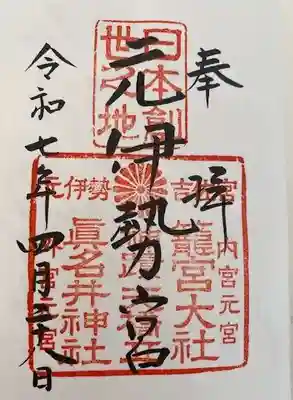 奉拝
日本創世之地
元伊勢宮
令和七年四月二十八日
元伊勢
吉佐宮
内宮元宮
籠宮大社
眞名井神社